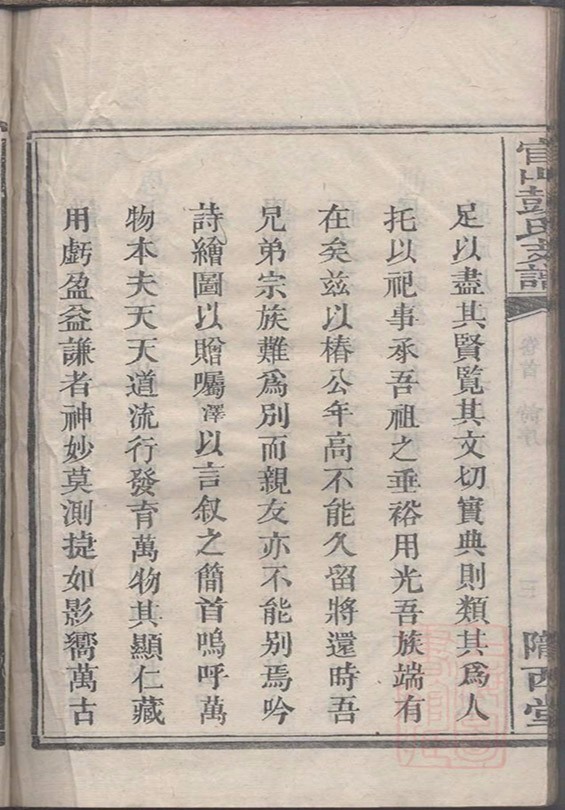 官山彭氏支譜
卷首 詩序
三
隴西堂
足以盡其賢覧其文切實典則類其爲人
托以祀事承吾祖之垂裕用光吾族端有
在矣兹以椿公年高不能久留將還時吾
兄弟宗族難爲別而親友亦不能别焉吟
詩繪圖以贈囑澤以言叙之簡首嗚呼萬
物本夫天天道流行發育萬物其顯仁藏
用虧盈益謙者神妙莫測捷如影嚮萬古